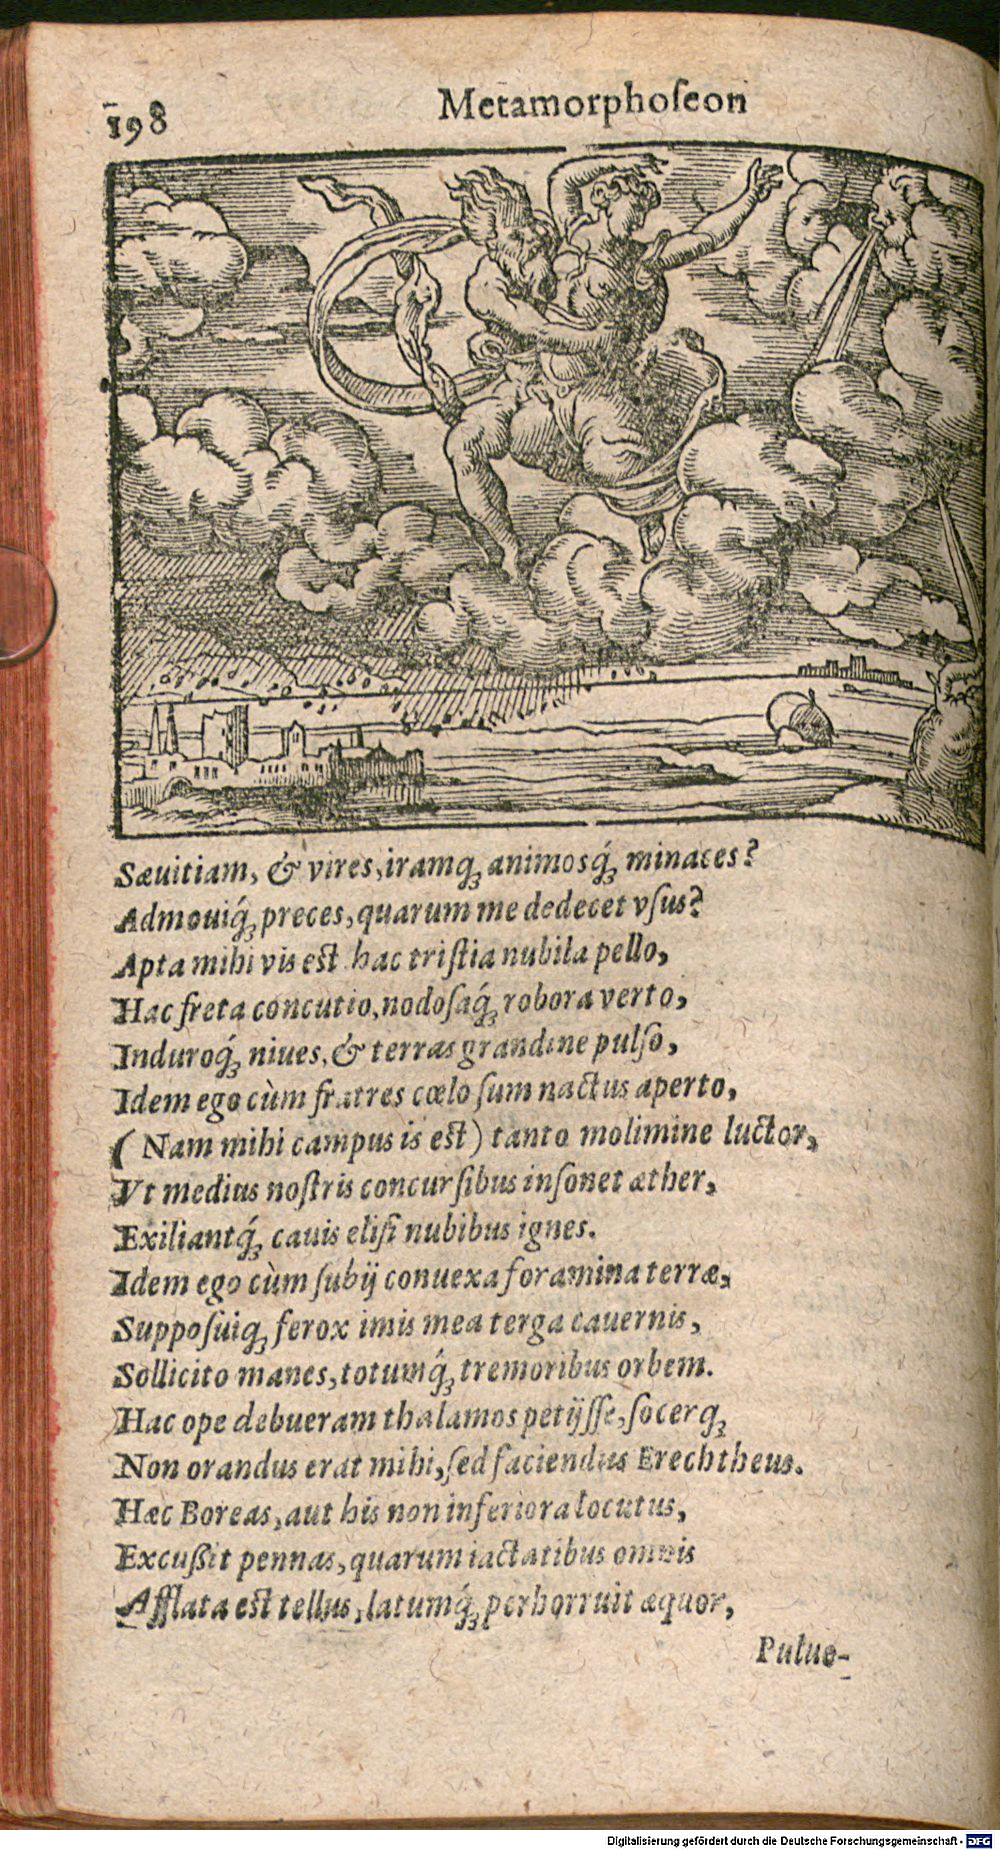 198
Metamorphoſeon
Sæuitiam, & vires, iramq́ꝫ animosq́ꝫ minaces?
Admouiq́ꝫ preces, quarum me dedecet vſus?
Apta mihi vis est hac triſtia nubila pello,
Hac freta concutio, nodoſaq́ꝫ robora verto,
Induroq́ꝫ niues, & terras grandine pulſo,
Idem ego cùm fratres cœlo ſum nactus aperto,
(Nam mihi campus is est) tanto molimine luctor,
Vt medius noſtris concurſibus inſonet æther,
Exiliantq́ꝫ cauis eliſi nubibus ignes.
Idem ego cùm ſubij conuexa foramina terræ,
Suppoſuiqꝫ ferox imis mea terga cauernis,
Sollicito manes, totumq́ꝫ tremoribus orbem.
Hac ope debueram thalamos petijſſe, ſocerqꝫ
Non orandus erat mihi, ſed faciendus Erechtheus.
Hæc Boreas, aut his non inferiora locutus,
Excußit pennas, quarum iactatibus omnis
Afflata est tellus, latumq́ꝫ perhorruit æquor,
Pulue-
Digitalisierung gefördert durch die Deutsche Forschungsgemeinschaft - DFG